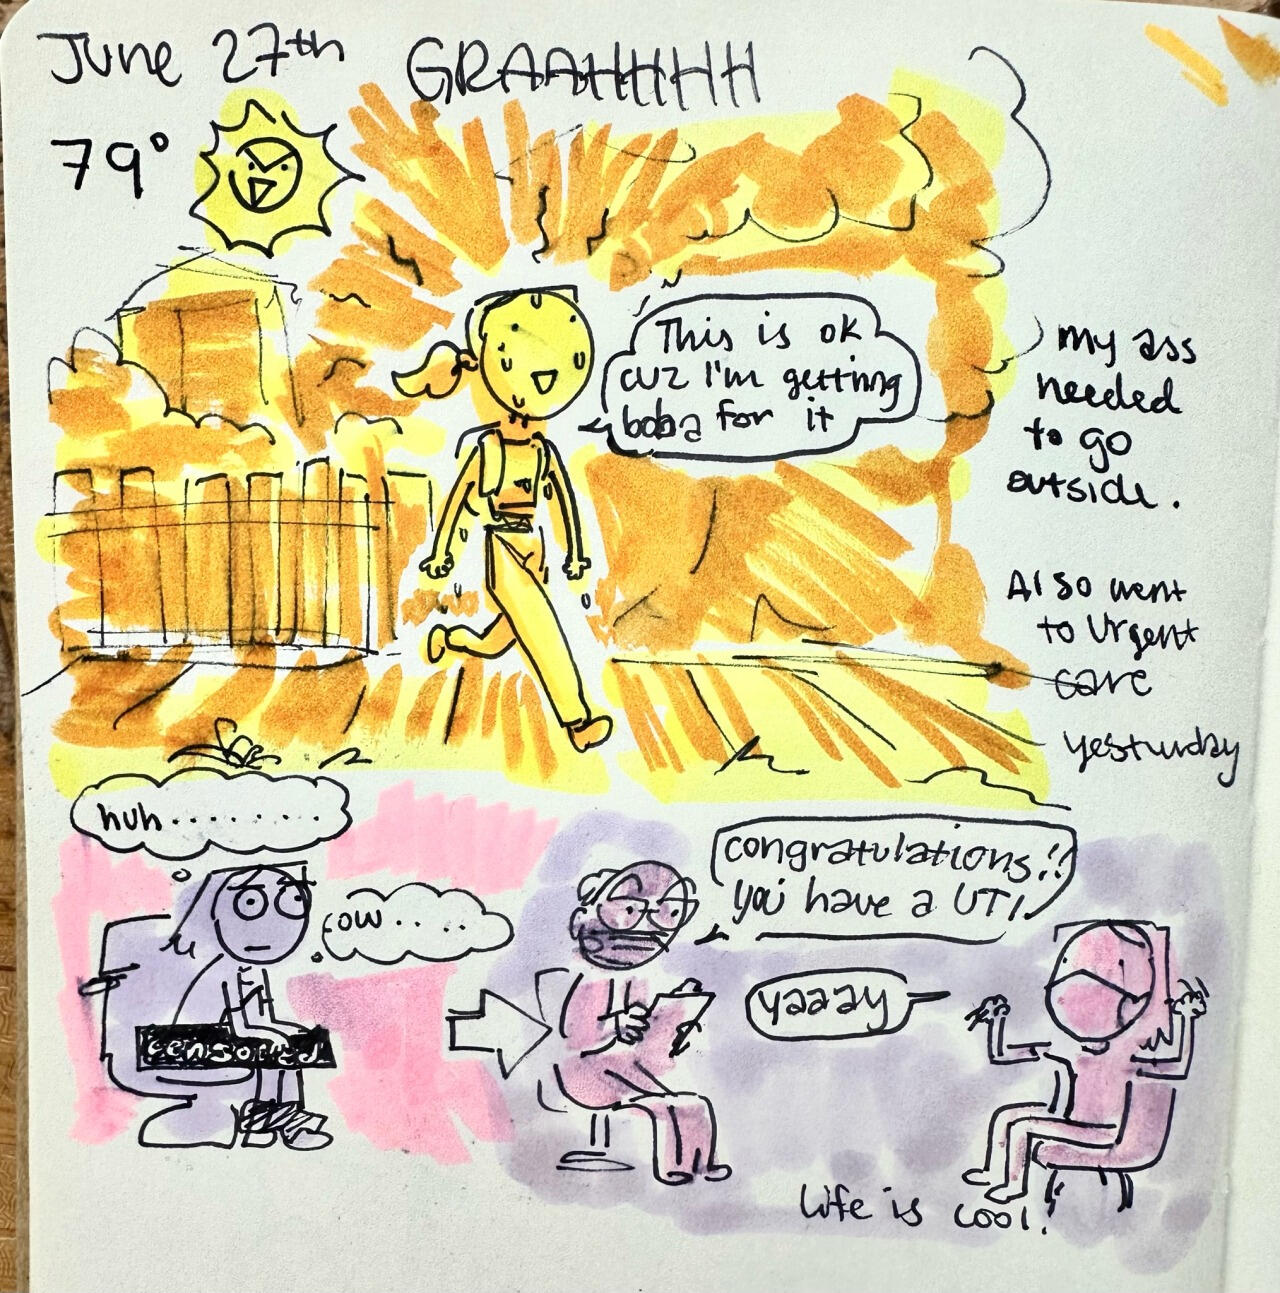 June 27th
GRAAHHHHH
79°
This is ok
cuz I'm getting
boba for it
my ass
needed
to go
outside.
Also went
to Urgent
care
yesturday
huh........
ow.. ..
censored
congratulations!!
you have a UTI
yaaay
Life is cool!